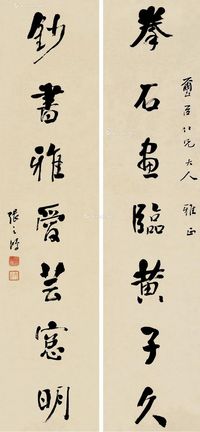 臣仁兄大人 雅正
拳石畫臨黃子久
鈔書雅愛芸窓明
張之